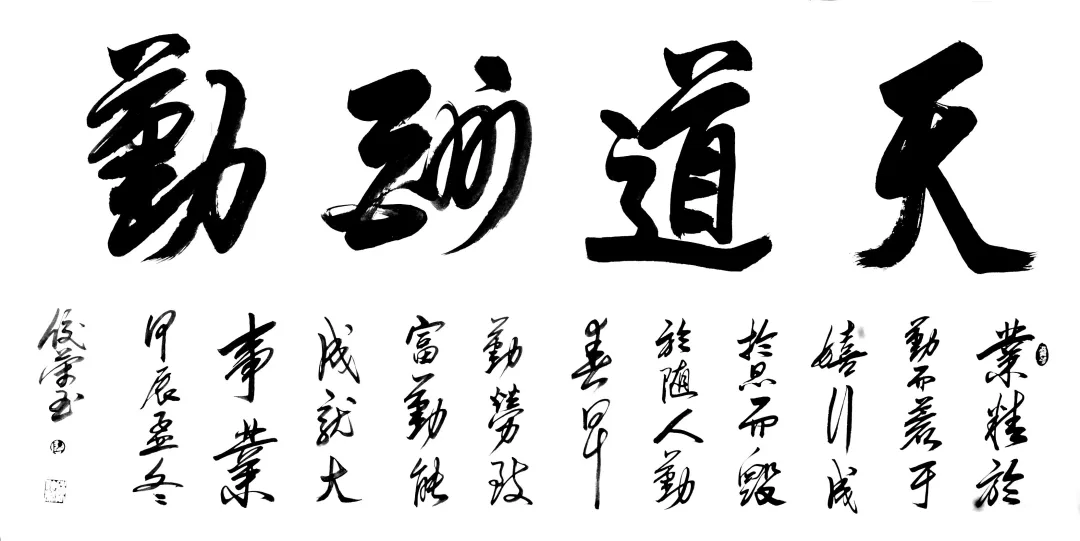 天道酬勤
業精於
勤而荒于
嬉行成
於思而毀
於随人勤
春早
勤勞致
富勤能
成就大
事業
甲辰孟冬